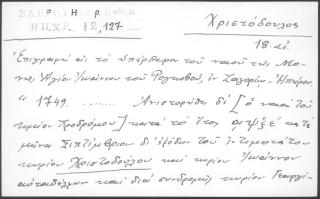 Η
12,127
Χριστόδουλος
18. αἰ.
Ἐπιγραφὴ εἰς τὸ ὑπέρθυρον τοῦ ναοῦ τῆς Μο-
νῆς Ἁγίου Ἰωάννου τοῦ Ρογκοβοῦ, ἐν Ζαγορίῳ - Ἠπείρου
"1749 ........ Ἀνιστορήθη δὲ [ὁ ναὸς τοῦ
τιμίου Προδρόμου] κατὰ τὸ ἔτος αψμθ κατὰ
μῆνα Σεπτέμβριον δι' ἐξόδου τοῦ ἐντιμοτάτου
κυρίου Χριστοδούλου καὶ κυρίου Ἰωάννου
αὐταδέλφων καὶ διὰ συνδρομῆς κυρίου Γεωργί-